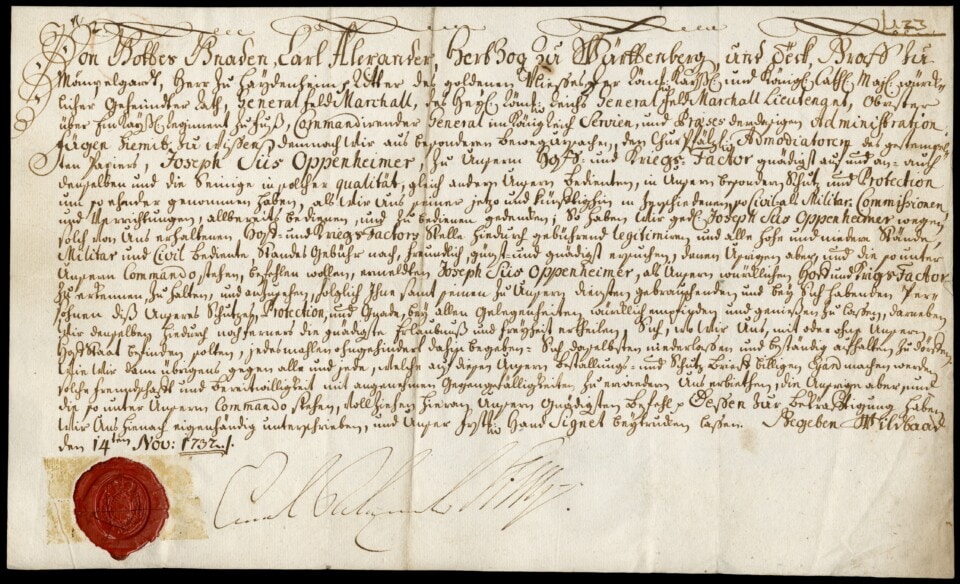 Von Gottes Gnaden, Carl Alexander, Hertzog zu Würtemberg, und Teck, Graff zu
Mömpelgardt, Herr zu Haydenheim, Ritter des goldenen Vliesses, der Röm: Kayßl: und Königl: Cathl: Mayl: würck-
licher Geheimbter Rath, General Feld Marchall, des Heyl: Röm: Reichs General Feld Marchall Lieutenant, Obrister
über Ein Kayßl: Regiment zu Fuß, Commandirender General im Königreich Servien, und Præses der dasigen Administration.
Fügen hiemit zu wissen, demnach Wir aus besonderen bewegursachen, den Churpfältzig Admodiatorem des gestempel-
ten Papiers, Joseph Süs Oppenheimer, zu Unserm Hoff- und Kriegs-Factor gnädigst auf und an- auch
denselben und die Seinige in solcher qualität, gleich andern Unsern bedienten, in Unsern besondern Schutz und Protection
um so ehender genommen haben, als Wir Uns seiner jetzo und künfftighin in Verschiedenen so Civil als Militar-Commissionen
und Verrichtungen, allbereits bedienen, und zu bedienen gedencken; So haben Wir ged: Joseph Süs Oppenheimer wegen
solch von Uns erhaltenen Hoff- und Kriegs-Factors Stelle hiedurch gebührend legitimiren und alle hohe und niedere Stände,
Militar und Civil bediente Standes Gebühr nach, freundlich, günst- und gnädigst ersuchen, denen Unsrigen aber, und die so unter
Unserm Commando stehen, befehlen wollen, ermeldten Joseph Süs Oppenheimer, als Unsern würcklichen Hoff und Kriegs-Factor
zu erkennen, zu halten, und anzusehen, folglich Ihne samt seinen zu Unsern diensten gebrauchenden und bey Sich habenden Per-
sohnen diß Unseres Schutzes, Protection, und Gnade, bey allen Gelegenheiten würcklich empfinden und geniesen zu lassen, darneben
Wir demselben hiedurch noch ferners die gnädigste Erlaubnuß und Freyheit ertheilen, Sich, wo Wir Uns, mit oder ohne Unsern
Hoff Staat befinden solten, jedesmahlen ohngehindert dahin begeben- Sich daselbsten niederlassen und beständig aufhalten zu dörffen.
Wie Wir dann übrigens gegen alle und jede, welche an diesen Unsern bestallungs- und Schutz brieff billigen Egard machen werden,
solche freundschafft und bereitwilligkeit mit angenehmen Gegengefälligkeiten zu erwiedern Uns erbiethen, die Unsrige aber, und
die so unter Unserm Commando stehen, vollziehen hieran Unsern Gnädigsten Befehl. Dessen zur bekräfftigung haben
Wir Uns hienach eigenhändig unterschrieben, und Unser Hand Signet beytrucken lassen. Gegeben Wildbaad
den 14ten Nov: 1732.
Carl Alexander